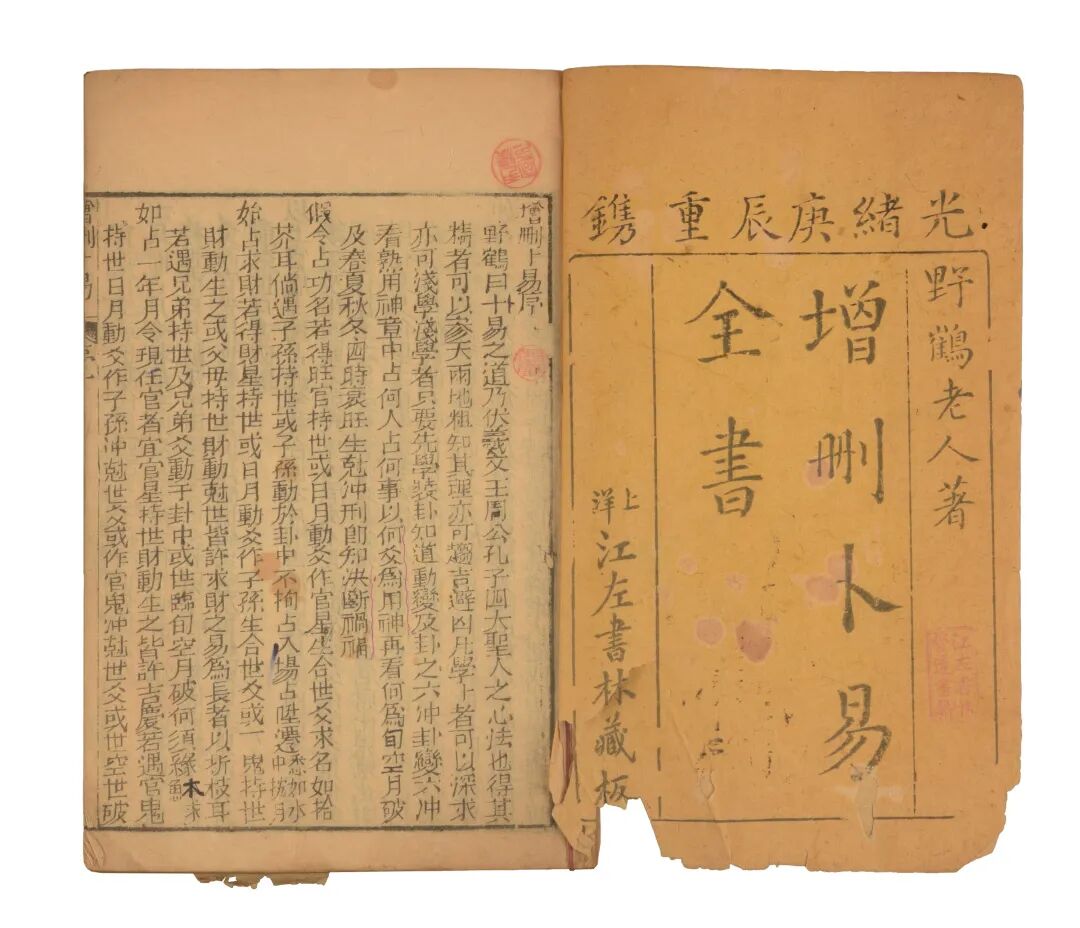 光緒庚辰重鐫
野鶴老人著
增刪卜易
全書
上洋江左書林藏板
增刪卜易序
野鶴曰卜易之道乃伏羲文王周公孔子四大聖人之心法也得其
精者可以參天兩地粗知其理亦可趨吉避凶凡學卜者可以深求
亦可淺學淺學者只要先學裝卦知道動變及卦之六冲卦變六冲
看熟用神章中占何人占何事以何爻爲用神再看何爲旬空月破
及春夏秋冬四時衰旺生尅冲刑卽知決斷禍福
假令占功名若得旺官持世或日月動爻作官星生合世爻求名如拾
芥耳倘遇子孫持世或子孫動於卦中不拘占入場占陞遷悉如水中撈月
始占求財若得財星持世或日月動爻作子孫生合世爻或一鬼持世
財動生之或父母持世財動尅世皆許求財之易爲長者以折枝耳
若遇兄弟持世及兄弟爻動于卦中或世臨旬空月破何須緣木求魚
如占一年月令現任官者宜官星持世財動生之皆許吉慶若遇官鬼
持世日月動爻作子孫冲尅世爻或作官鬼冲尅世爻或世空世破
增刪卜易
序一